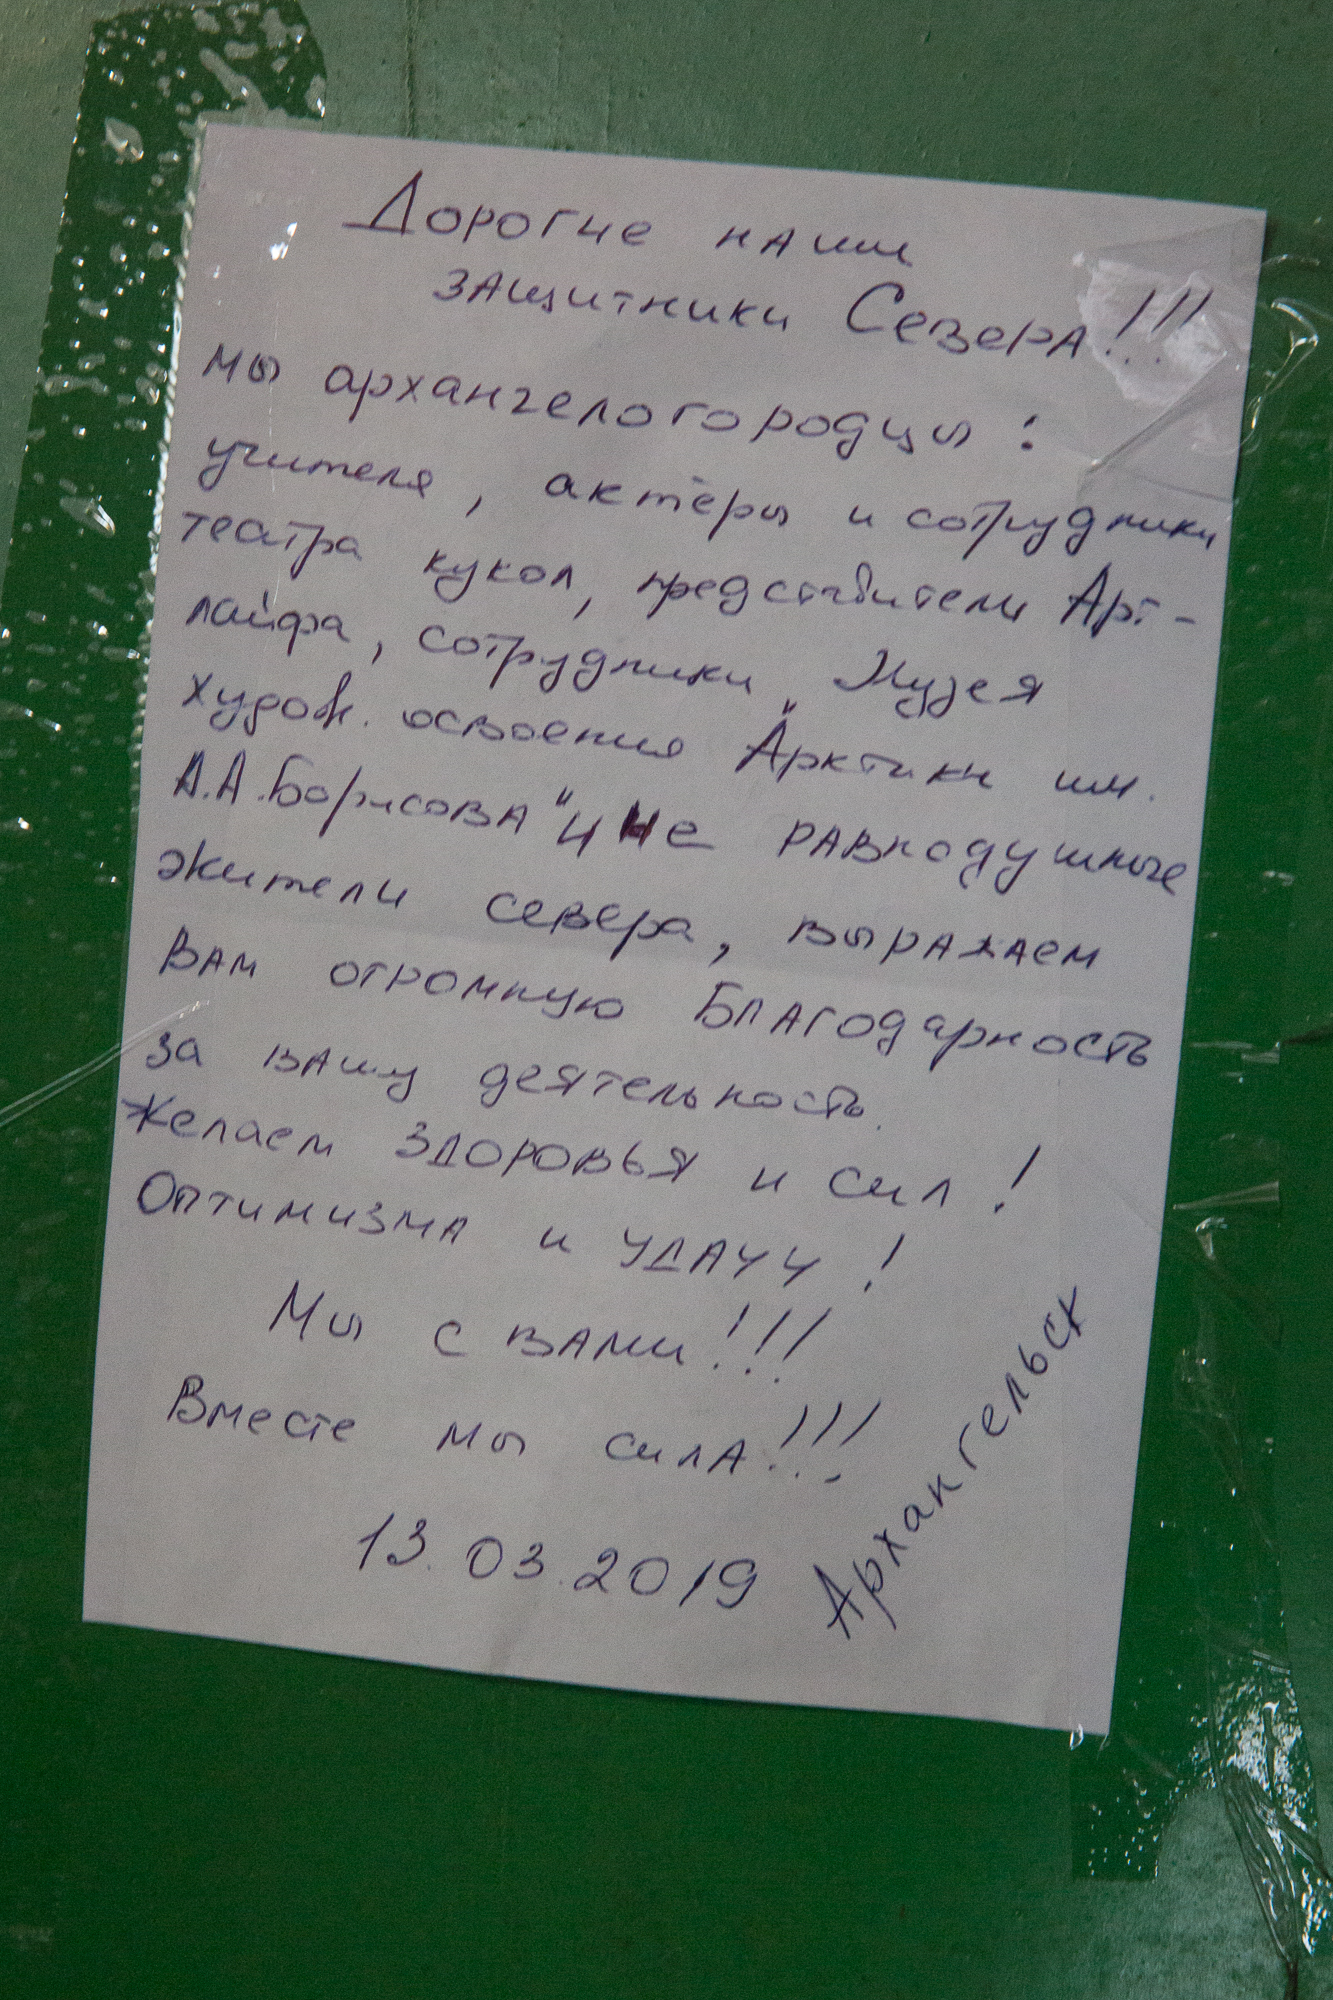 Дорогие наши
защитники Севера!!!
мы архангелогородцы:
учителя, актёры и сотрудники
театра кукол, представители Арт-
лайфа, сотрудники Музея
худож. освоения "Арктики им.
А.А.Борисова" и не равнодушные
жители севера, выражаем
Вам огромную Благодарность
за вашу деятельность.
Желаем здоровья и сил!
Оптимизма и удачу!
Мы с вами!!!
Вместе мы сила!!!
13.03.2019
Архангельск